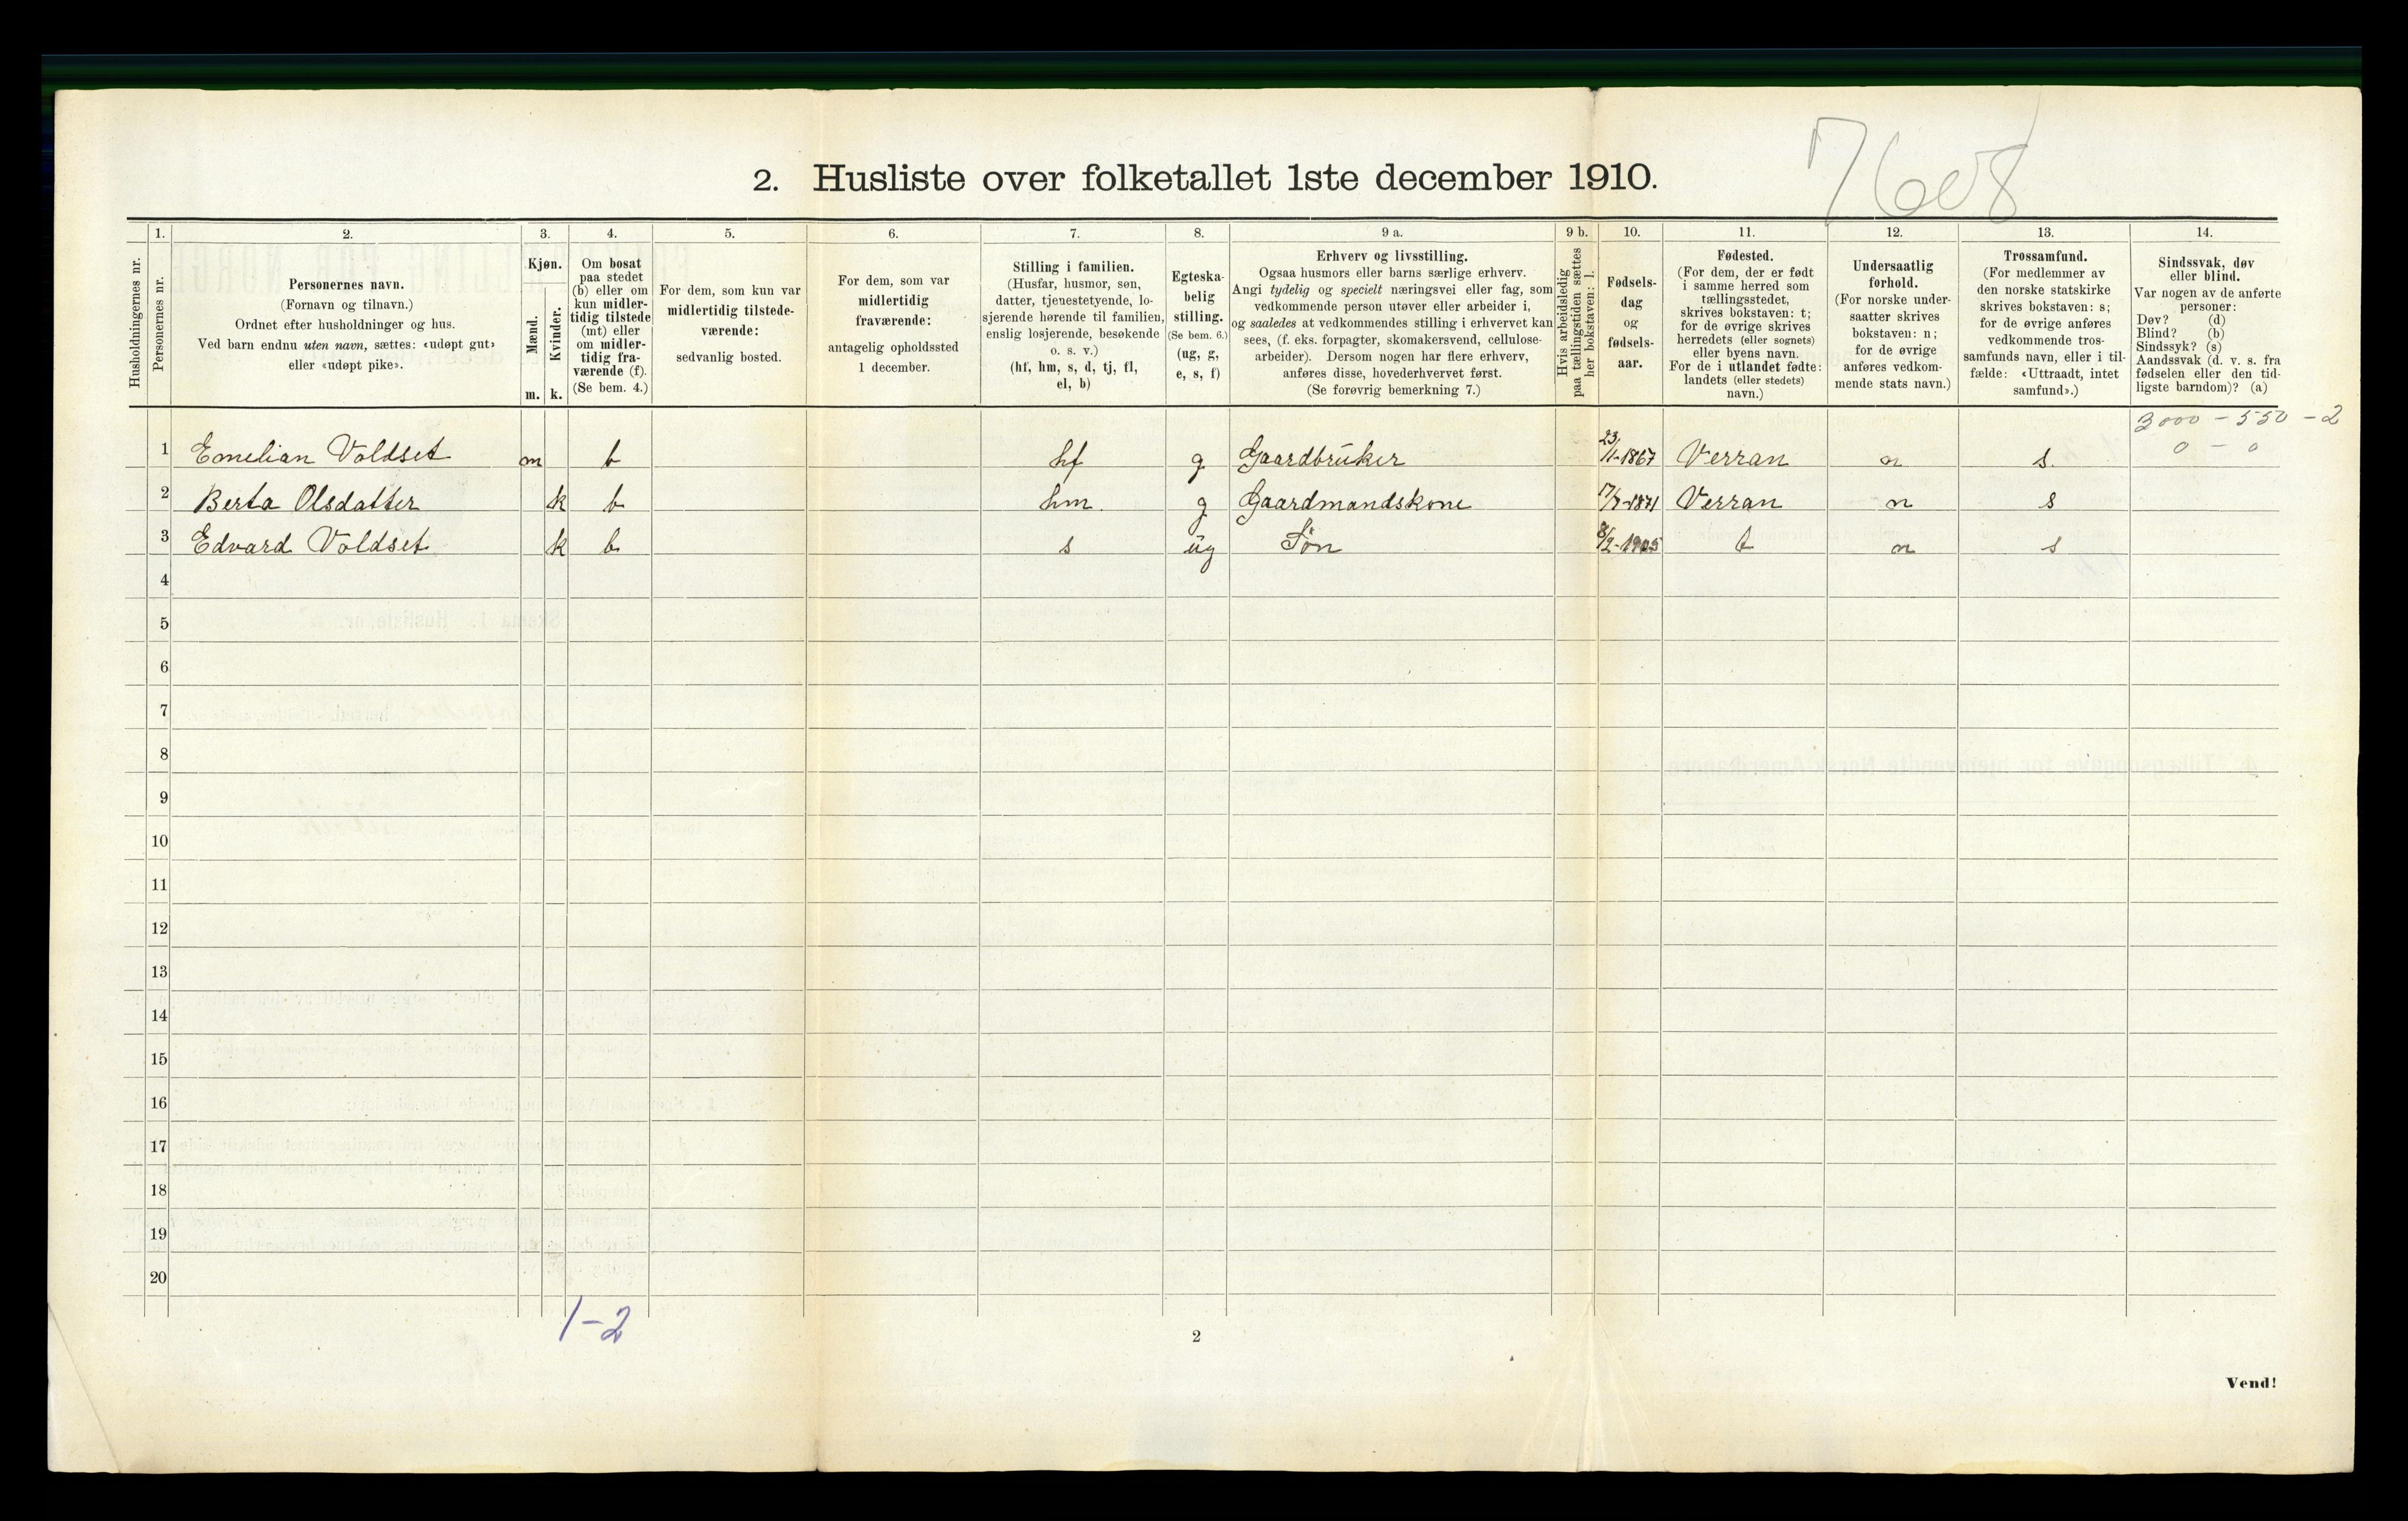 7608
2. Husliste over folketallet 1ste december 1910.
Husholdningernes nr.
1.
Personernes nr.
2.
Personernes navn.
(Fornavn og tilnavn.)
Ordnet efter husholdninger og hus.
Ved barn endnu uten navn, sættes: «udøpt gut»
eller «udøpt pike».
3.
Kjøn.
Mænd.
Kvinder.
m. k.
4.
Om bosat
paa stedet
(b) eller om
kun midler-
tidig tilstede
(mt) eller
om midler-
tidig fra-
værende (f).
(Se bem. 4.)
5.
For dem, som kun var
midlertidig tilstede-
værende:
sedvanlig bosted.
6.
For dem, som var
midlertidig
fraværende:
antagelig opholdssted
1 december.
7.
Stilling i familien.
(Husfar, husmor, søn,
datter, tjenestetyende, lo-
sjerende hørende til familien,
enslig losjerende, besøkende
o. s. v.)
(hf, hm, s, d, tj, fl,
el, b)
8.
Egteska-
belig
stilling.
(Se bem. 6.)
(ug, g,
e, s, f)
9 a.
Erhverv og livsstilling.
Ogsaa husmors eller barns særlige erhverv.
Angi tydelig og specielt næringsvei eller fag, som
vedkommende person utøver eller arbeider i,
og saaledes at vedkommendes stilling i erhvervet kan
sees, (f. eks. forpagter, skomakersvend, cellulose-
arbeider). Dersom nogen har flere erhverv,
anføres disse, hovederhvervet først.
(Se forøvrig bemerkning 7.)
9 b.
Hvis arbeidsledig
paa tællingstiden sættes
her bokstaven: l.
10.
Fødsels-
dag
og
fødsels-
aar.
11.
Fødested.
(For dem, der er født
i samme herred som
tællingsstedet,
skrives bokstaven: t;
for de øvrige skrives
herredets (eller sognets)
eller byens navn.
For de i utlandet fødte:
landets (eller stedets)
navn.)
12.
Undersaatlig
forhold.
(For norske under-
saatter skrives
bokstaven: n;
for de øvrige
anføres vedkom-
mende stats navn.)
13.
Trossamfund.
(For medlemmer av
den norske statskirke
skrives bokstaven: s;
for de øvrige anføres
vedkommende tros-
samfunds navn, eller i til-
fælde: «Uttraadt, intet
samfund».)
14.
Sindssvak, døv
eller blind.
Var nogen av de anførte
personer:
Døv? (d)
Blind? (b)
Sindssyk? (s)
Aandssvak (d. v. s. fra
fødselen eller den tid-
ligste barndom)? (a)
3000 - 550 - 2
0 - 0
1 Emelian Voldset m b hf g Gaardbruker 23/1-1867 Verran n s.
2 Berta Olsdatter k b hm. g Gaardmandskone 17/7-1871 Verran n s
3 Edvard Voldset k b s ug Søn 8/2-1905 t n s
4
5
6
7
8
9
10
11
12
13
14
15
16
17
18
19
20
1-2
2
Vend!